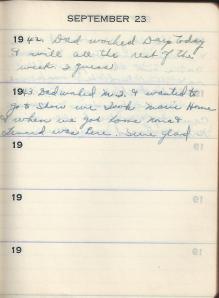 SEPTEMBER 23
1942. Dad worked Days today
I will all the rest of the
week I guess
1943. Dad worked M.S. I wanted to
go to Show we took Marie Home
& when we got home Nora &
Leonard was here. Sure glad
19
19
19